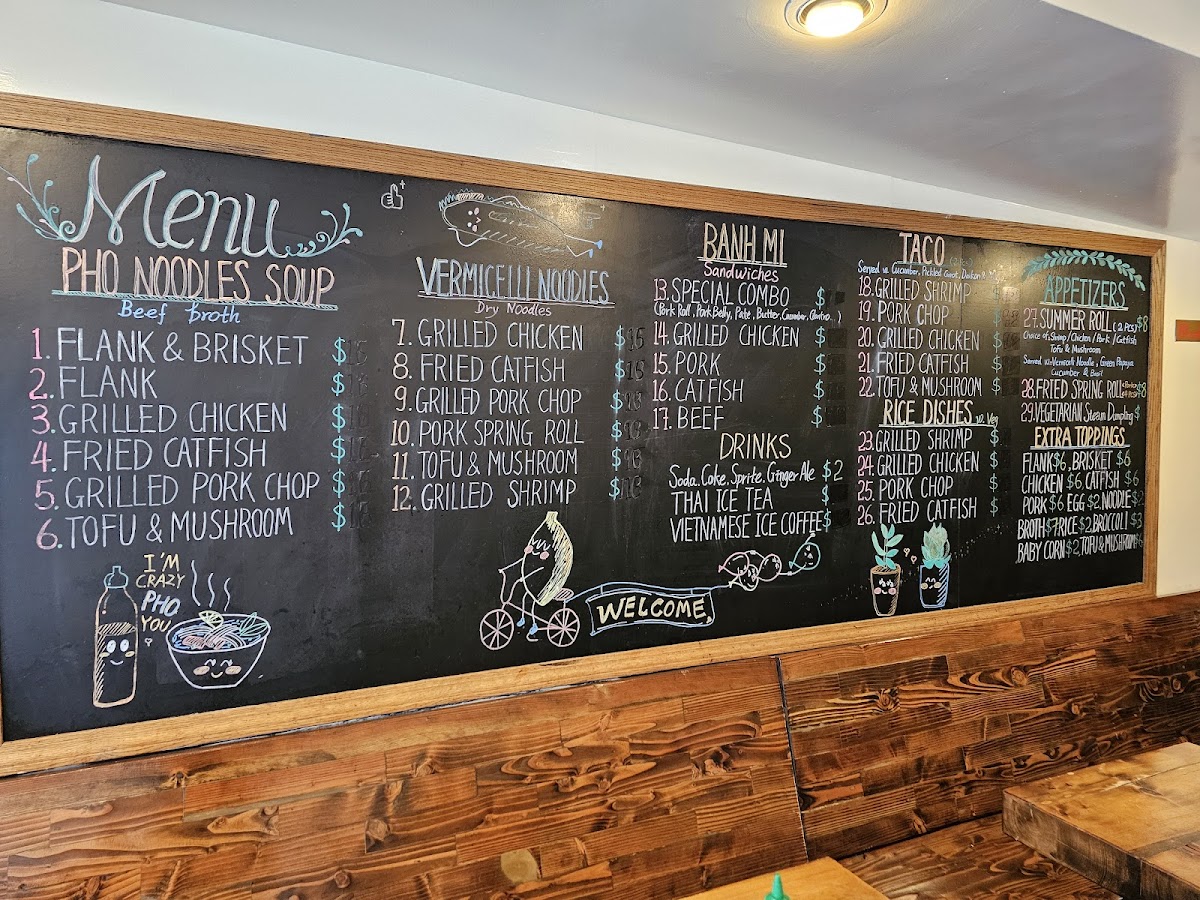 Menu
PHO NOODLES SOUP
Beef broth
1. FLANK & BRISKET $
2. FLANK $
3. GRILLED CHICKEN $
4. FRIED CATFISH $
5. GRILLED PORK CHOP $
6. TOFU & MUSHROOM $
I'M
CRAZY
PHO
YOU
VERMICELLI NOODLES
Dry Noodles
7. GRILLED CHICKEN $15
8. FRIED CATFISH $
9. GRILLED PORK CHOP $
10. PORK SPRING ROLL $
11. TOFU & MUSHROOM $
12. GRILLED SHRIMP $
WELCOME
BANH MI
Sandwiches
13. SPECIAL COMBO $
(Pork Roll, Pork Belly, Pate, Butter, Cucumber, Cilantro...)
14. GRILLED CHICKEN $
15. PORK $
16. CATFISH $
17. BEEF $
DRINKS
Soda. Coke. Sprite. Ginger Ale $2
THAI ICE TEA $
VIETNAMESE ICE COFFEE $
TACO
Served w. Cucumber, Pickled Carrot, Daikon &
18. GRILLED SHRIMP $
19. PORK CHOP $
20. GRILLED CHICKEN $
21. FRIED CATFISH $
22. TOFU & MUSHROOM $
RICE DISHES w. Veg
23. GRILLED SHRIMP $
24. GRILLED CHICKEN $
25. PORK CHOP $
26. FRIED CATFISH $
APPETIZERS
27. SUMMER ROLL (2 PCS) $8
Choice of: Shrimp / Chicken / Pork / Catfish
Tofu & Mushroom
Served w. Vermicelli Noodle, Green Papaya
Cucumber & Basil
28. FRIED SPRING ROLL $8
29. VEGETARIAN Steam Dumpling $
EXTRA TOPPINGS
FLANK $6, BRISKET $6
CHICKEN $6, CATFISH $6
PORK $6 EGG $2, NOODLE $2
BROTH $7 RICE $2, BROCCOLI $3
BABY CORN $2, TOFU & MUSHROOM $6